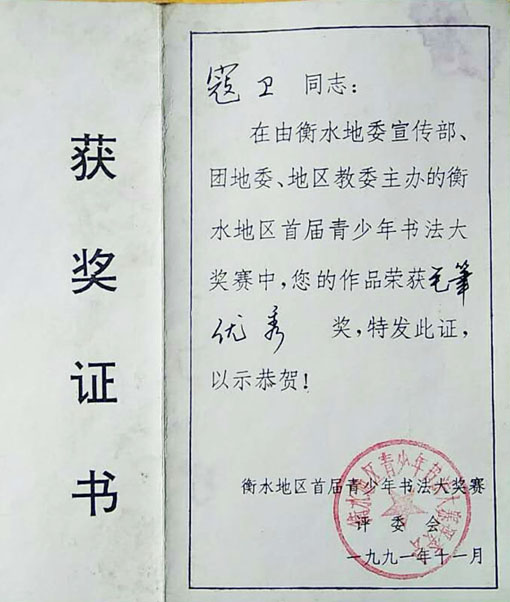 获奖证书
寇卫 同志：
在由衡水地委宣传部、
团地委、地区教委主办的衡
水地区首届青少年书法大
奖赛中，您的作品荣获毛筆
优秀 奖，特发此证，
以示恭贺！
衡水地区首届青少年书法大奖赛
评委会
一九九一年十一月